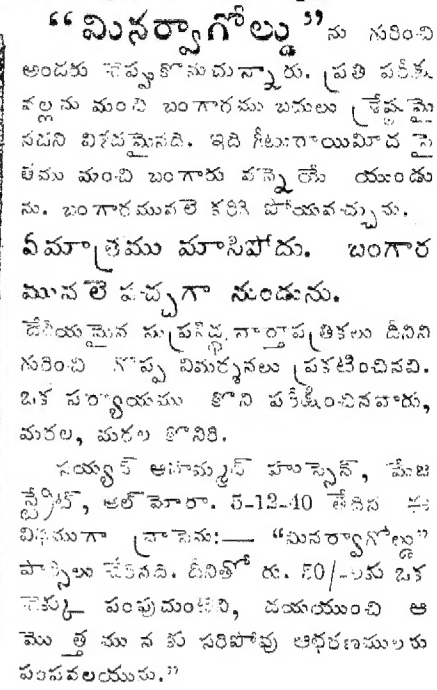 “మినర్వాగోల్డు”ను గురించి
అందరు చెప్పుకొనుచున్నారు. ప్రతి పరీక్ష
వల్లను మంచి బంగారము బదులు శ్రేష్ఠమై
నదని విశదమైనది. ఇది గీటురాయిమీద సై
తము మంచి బంగారు వన్నెయే యుండు
ను. బంగారమువలె కరిగి పోయవచ్చును.
ఏమాత్రము మాసిపోదు. బంగార
మువలె పచ్చగా నుండును.
దేశీయమైన సుప్రసిద్ధ వార్తాపత్రికలు దీనిని
గురించి గొప్ప విమర్శనలు ప్రకటించినవి.
ఒక పర్యాయము కొని పరీక్షించినవారు,
మరల, మరల కొనిరి.
సయ్యద్ అహమ్మద్ హుస్సేన్, మేజి
స్ట్రేట్, అల్‌మోరా. 5-12-40 తేదిన ఈ
విధముగా వ్రాసెను:— “మినర్వాగోల్డు”
పార్సిలు చేరినది. దీనితో రు. 50/-లకు ఒక
చెక్కు పంపుచుంటిని, దయయుంచి ఆ
మొత్తమునకు సరిపోవు ఆభరణములను
పంపవలయును.”